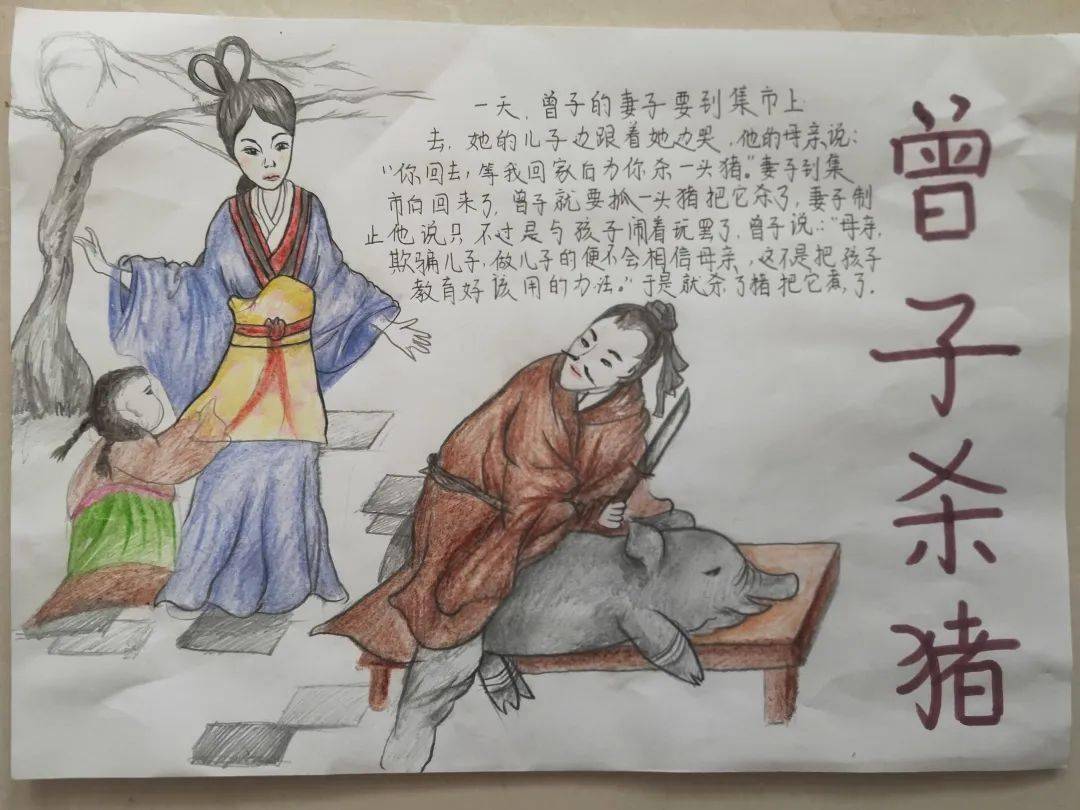 曾子杀猪
一天，曾子的妻子要到集市上
去，她的儿子边跟着她边哭，他的母亲说：
“你回去，等我回家后为你杀一头猪。”妻子到集
市向回来了，曾子就要抓一头猪把它杀了，妻子制
止他说只不过是与孩子闹着玩罢了，曾子说：“母亲，
欺骗儿子，做儿子的便不会相信母亲，这不是把孩子
教育好该用的办法。”于是就杀了猪把它煮了。